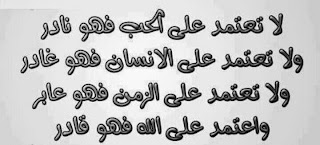 لا تعتمد على الحب فهو نادر
ولا تعتمد على الانسان فهو غادر
ولا تعتمد على الزمن فهو عابر
واعتمد على الله فهو قادر